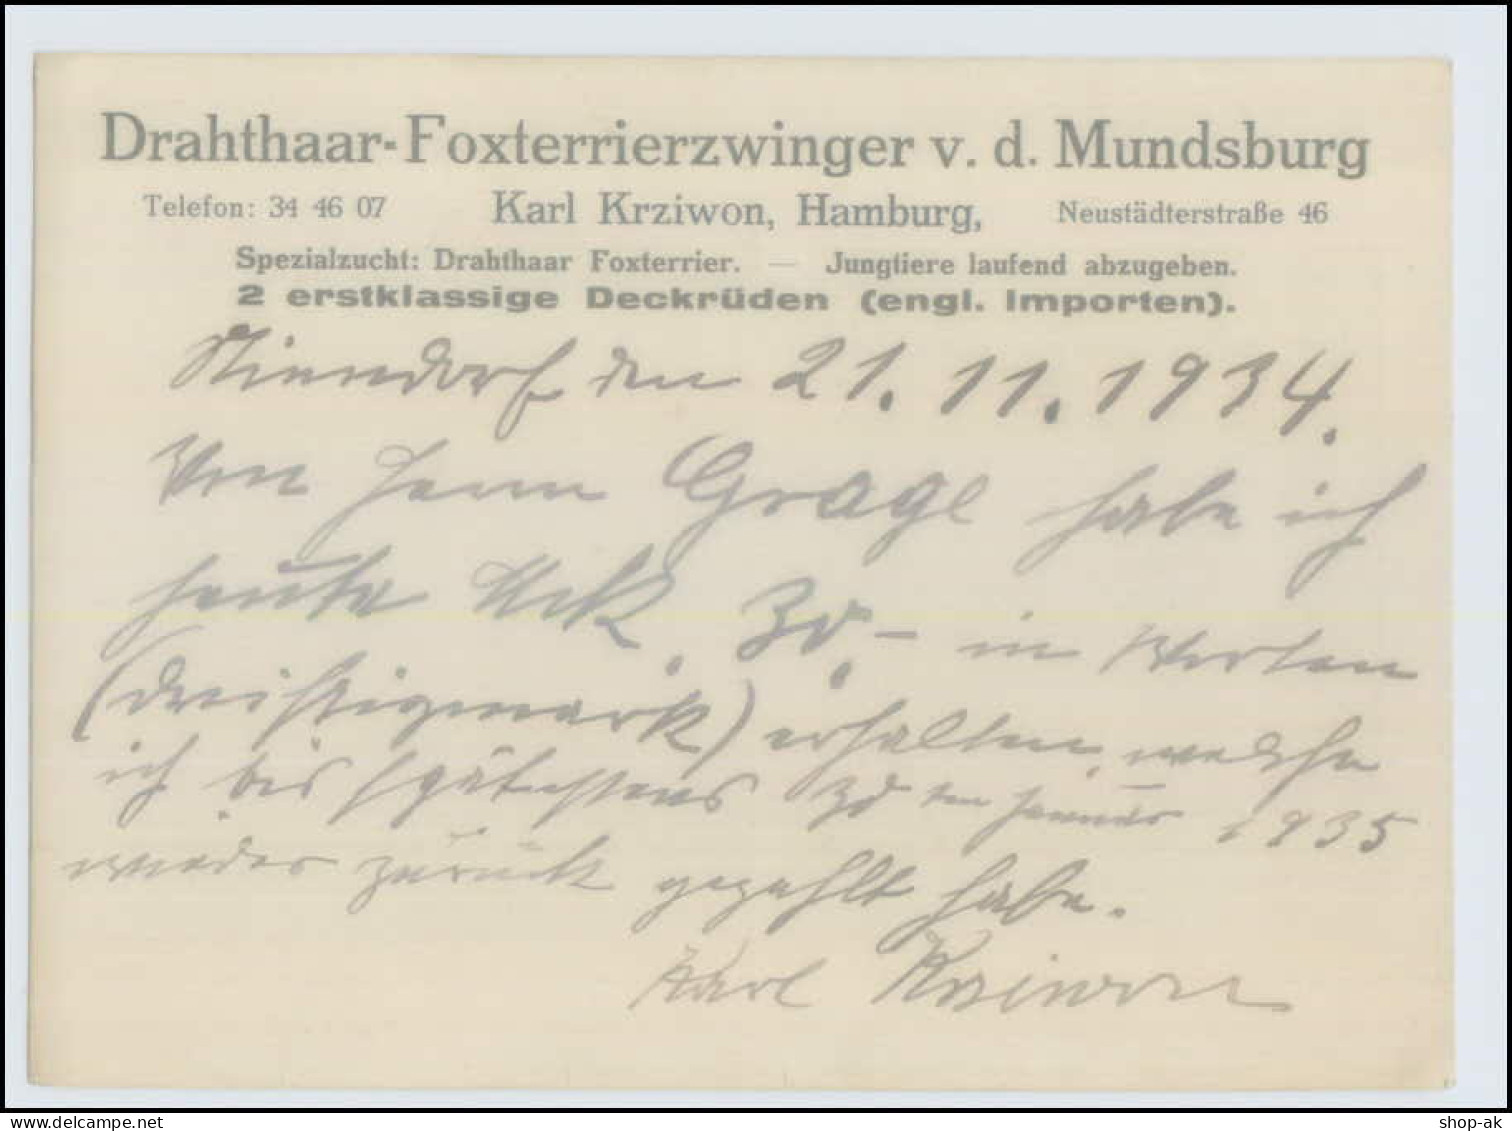 Drahthaar-Foxterrierzwinger v. d. Mundsburg
Telefon: 34 46 07 Karl Krziwon, Hamburg, Neustädterstraße 46
Spezialzucht: Drahthaar Foxterrier. — Jungtiere laufend abzugeben.
2 erstklassige Deckrüden (engl. Importen).
Niendorf den 21. 11. 1934.
Von Herrn Grage habe ich
heute Mk. 30.- in Worten
(dreissigmark) erhalten, welche
ich bis spätestens 30ten Januar 1935
wieder zurück gezahlt habe.
Karl Krziwon
www.delcampe.net
shop-ak